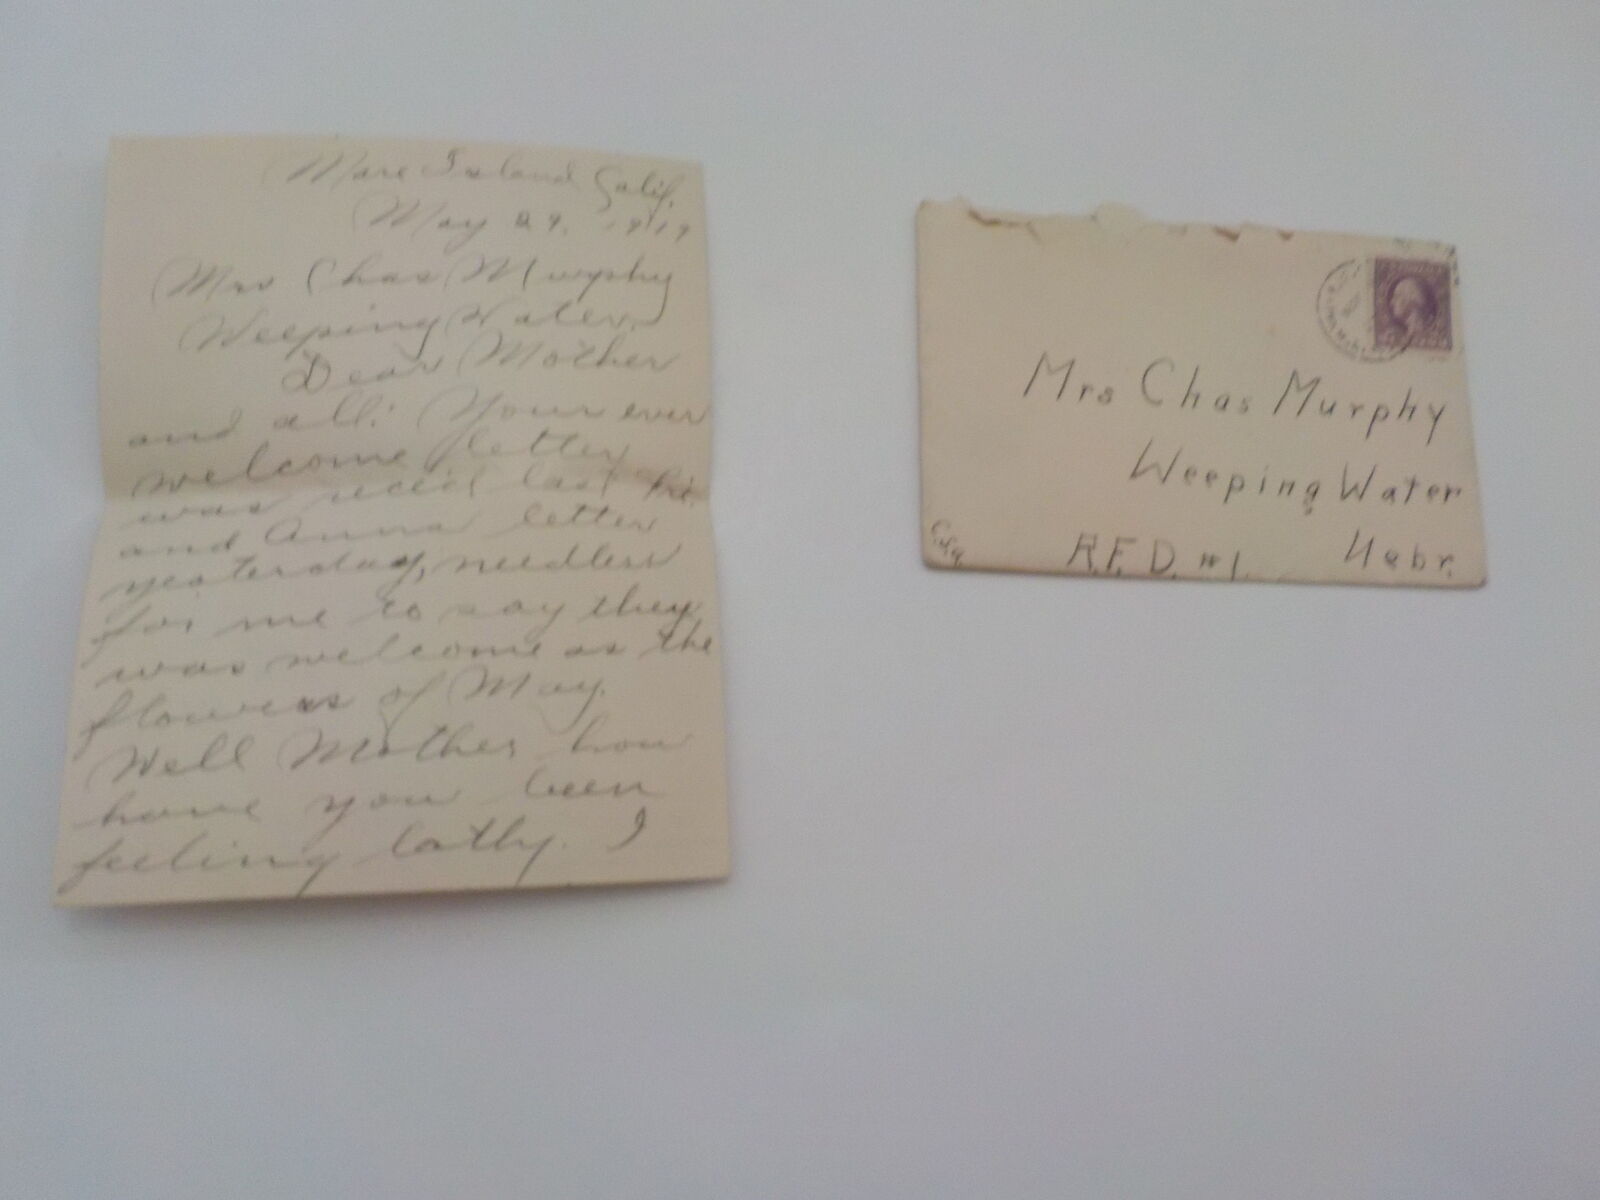 Mare Island Calif.
May 29, 1919
Mrs Chas Murphy
Weeping Water,
Dear Mother
and all: Your ever
welcome letter
was rec'd last Fri.
and Anna letter
yesterday, needless
for me to say they
was welcome as the
flowers of May.
Well Mother how
have you been
feeling latly. I
Mrs Chas Murphy
Weeping Water
R.F.D. #1. Nebr.